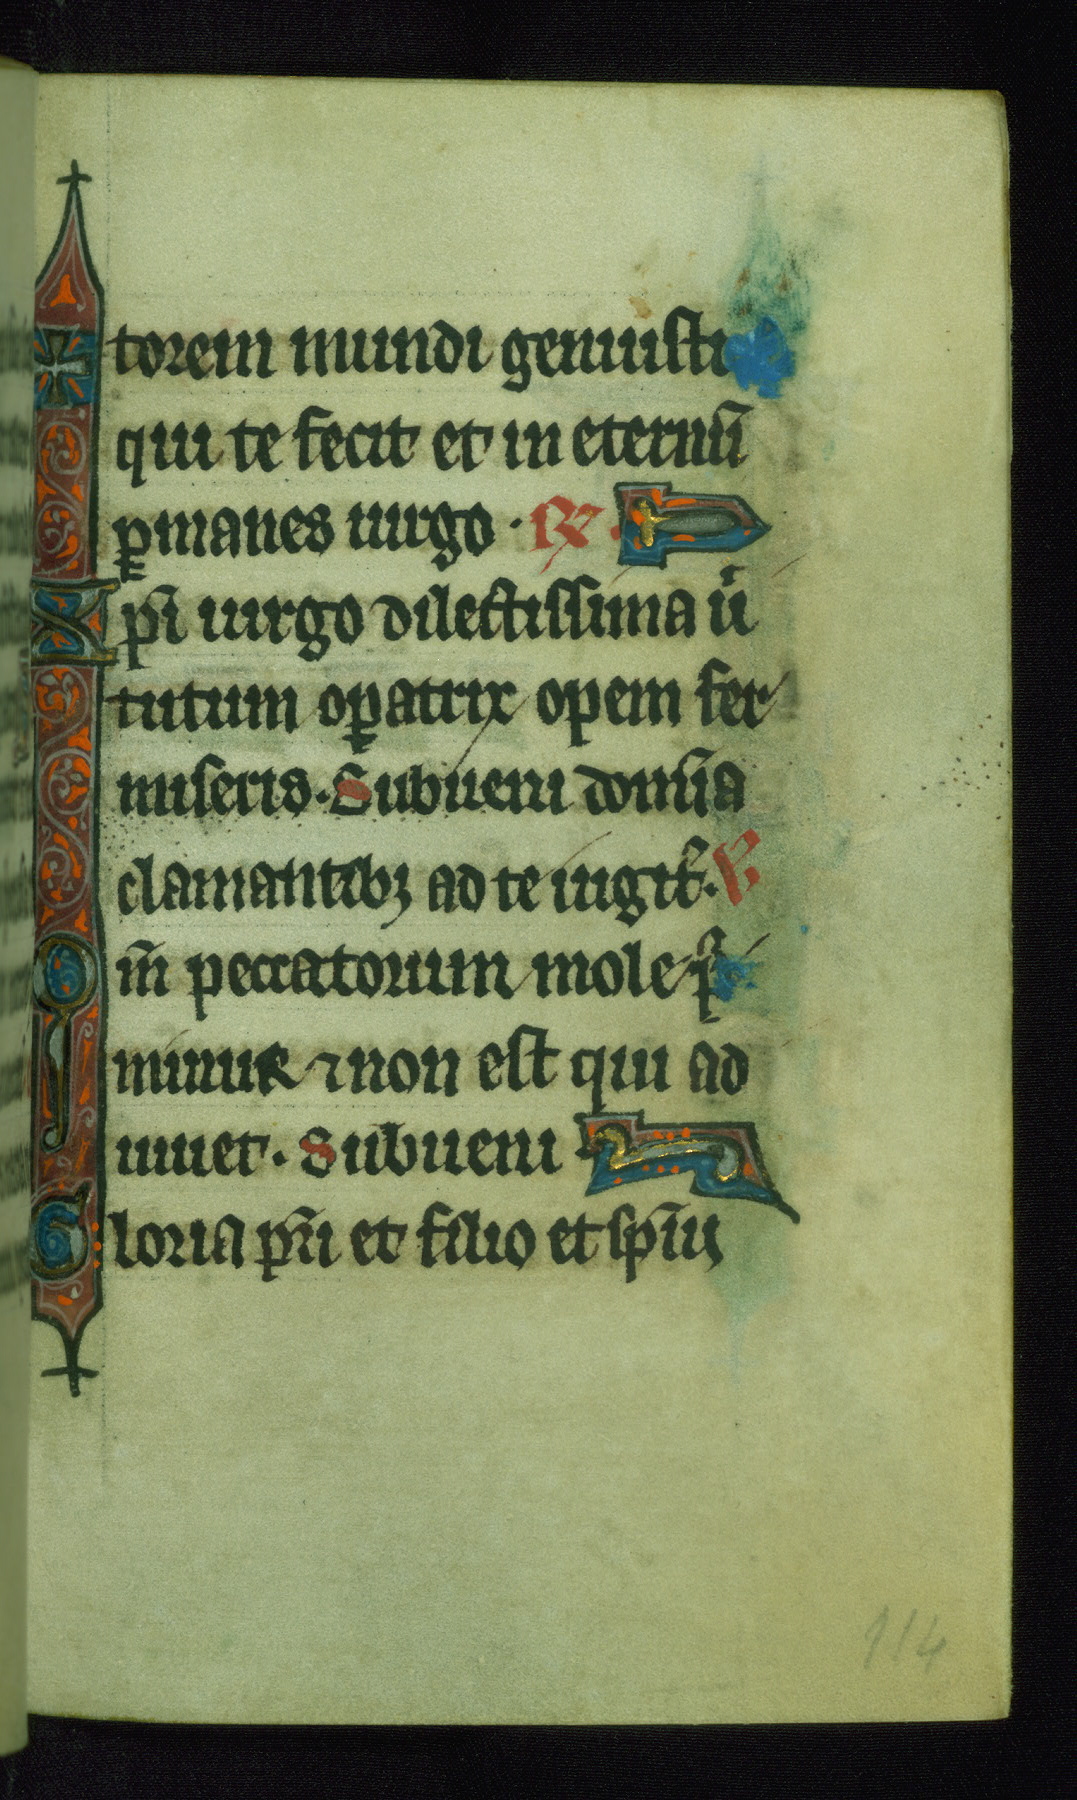 torem mundi genuisti
qui te fecit et in eternū
ꝑmanes uirgo · ℟ ·
Xp̄i uirgo dilectissima uͥ
tutum oꝑatrix opem fer
miseris · Subueni domīa
clamantibꝫ ad te iugit̄ · ℣
Qm̄ peccatorum mole p̄
mimur ⁊ non est qui ad
iuuet · Subueni
Gloria pr̄i et filio et sp̄iu
114